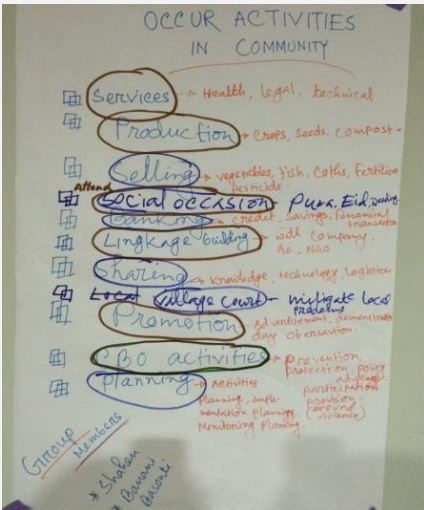 OCCUR ACTIVITIES
IN COMMUNITY
Services → Health, legal, technical
Production → Crops, seeds, compost-
Selling → vegetables, fish, Coths, Fertilizer
pesticide
Attend
Social occasion - Puja, Eid,
Banking → credit, savings, financial
Lingkage building → with company,
GO, NGO
Sharing → Knowledge, technology, Logistics
Local village court - mitigate local
problems
Promotion → advertisement, demonstration
day observation.
CBO activities → Prevention,
protection, policy
advocacy,
Planning → Activities
participation
Planning, imple-
provision
mentation planning,
(around
violence)
Monitoring Planning.
Group
Members
* Shahen
* Banani
Basonti